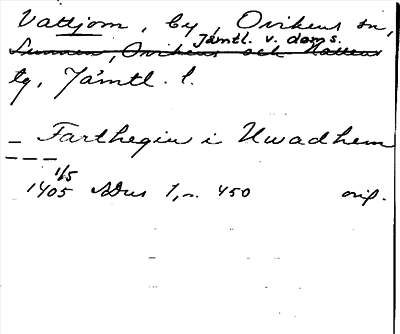 Vattjom, by, Ovikens sn,
Jämtl. v. doms.
Sunnen, Ovikens och Hallens
tg, Jämtl. l.
_ Farthegiu i Uwadhem
_ _ _
_ 1405 1/5 SDns 1, n. 450 orig.